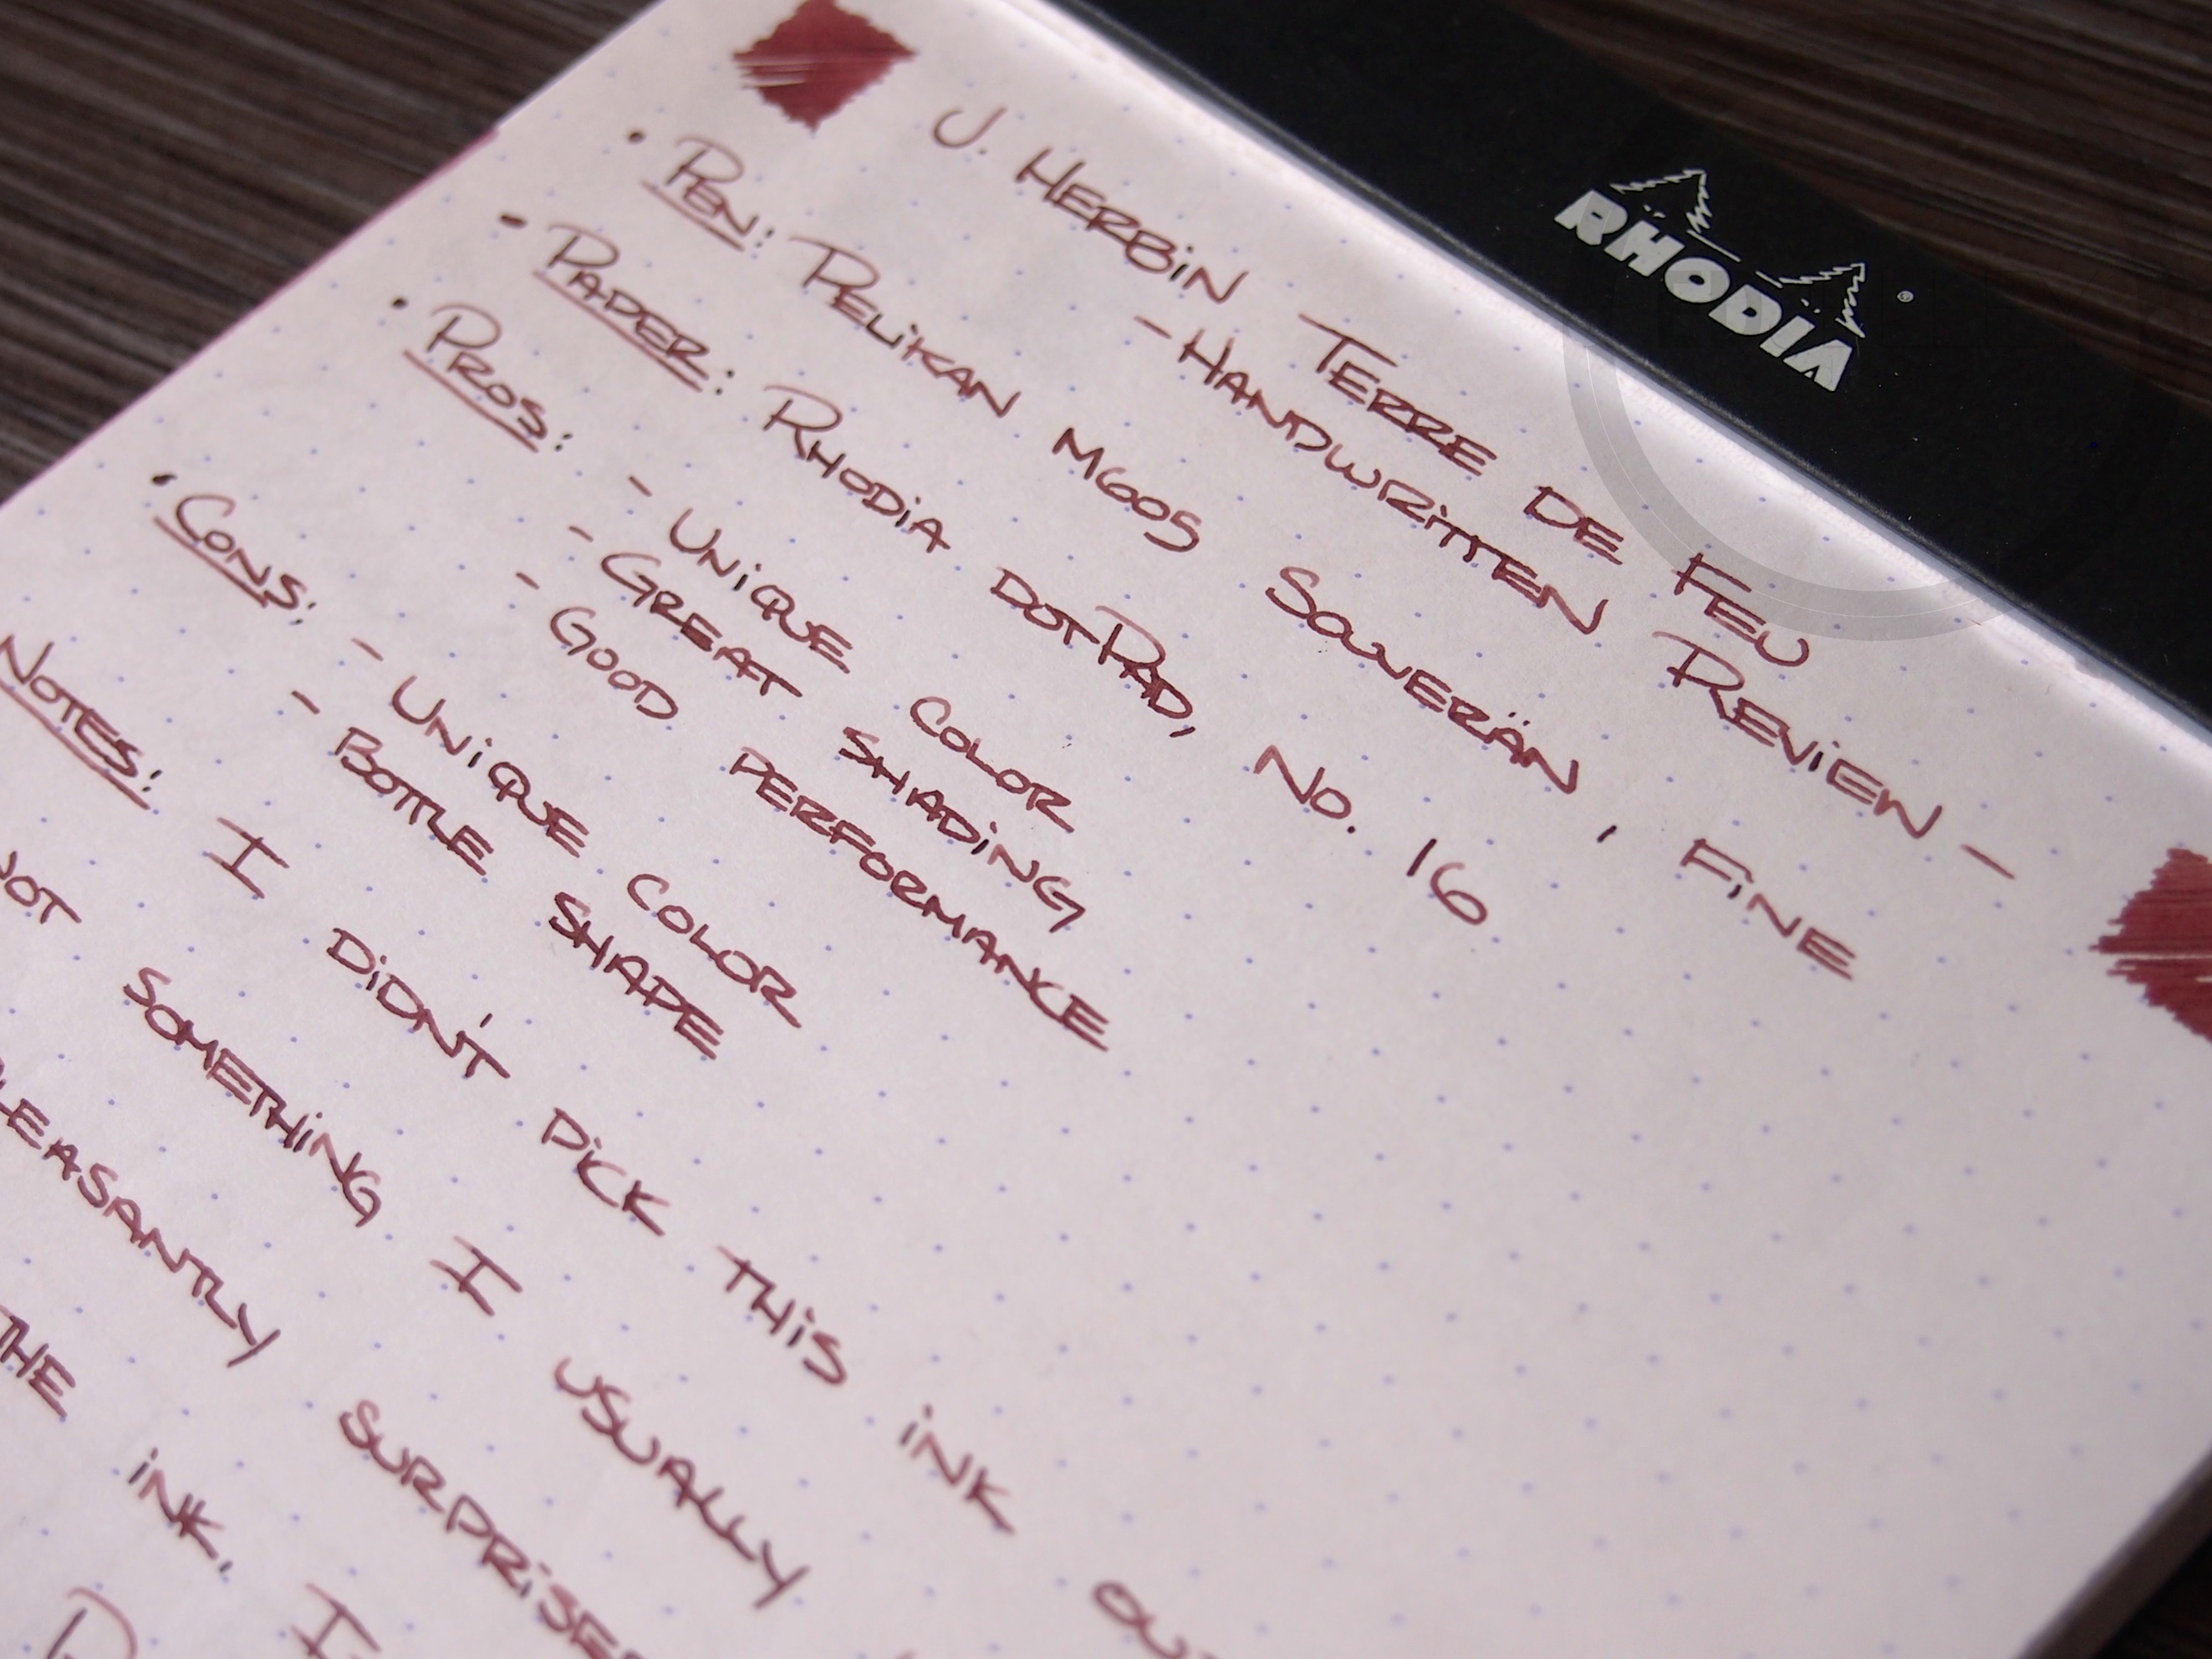 RHODIA
J. HERBIN TERRE DE FEU
- HANDWRITTEN REVIEW -
• PEN: PELIKAN M605 SOUVERÄN, FINE
• PAPER: RHODIA DOTPAD, NO. 16
• PROS: - UNIQUE COLOR
- GREAT SHADING
- GOOD PERFORMANCE
• CONS: - UNIQUE COLOR
- BOTTLE SHAPE
NOTES: I DIDN'T PICK THIS INK
SOMETHING I USUALLY
THE INK. I